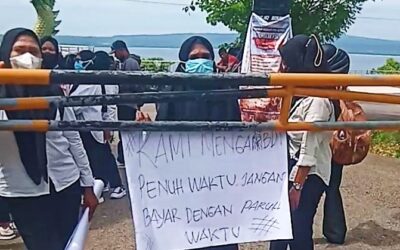 KAMI MENGABDI
PENUH WAKTU. JANGAN
BAYAR DENGAN PARUH
WAKTU ###